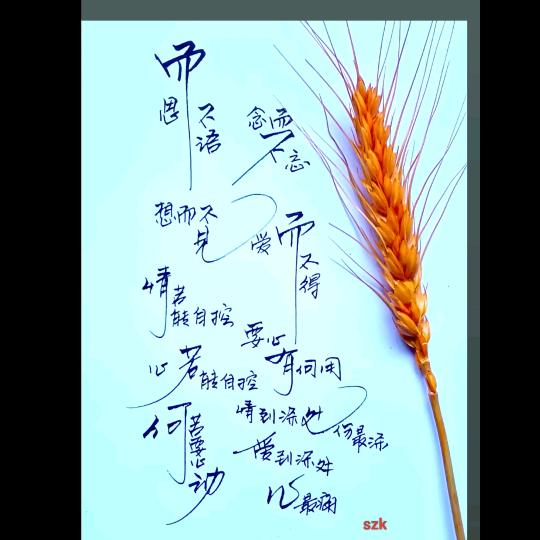 思而不语
念而不忘
想而不见
爱而不得
情若能自控
要心有何用
心若能自控
何苦要心动
情到深处
伤最深
爱到深处
心最痛
szk